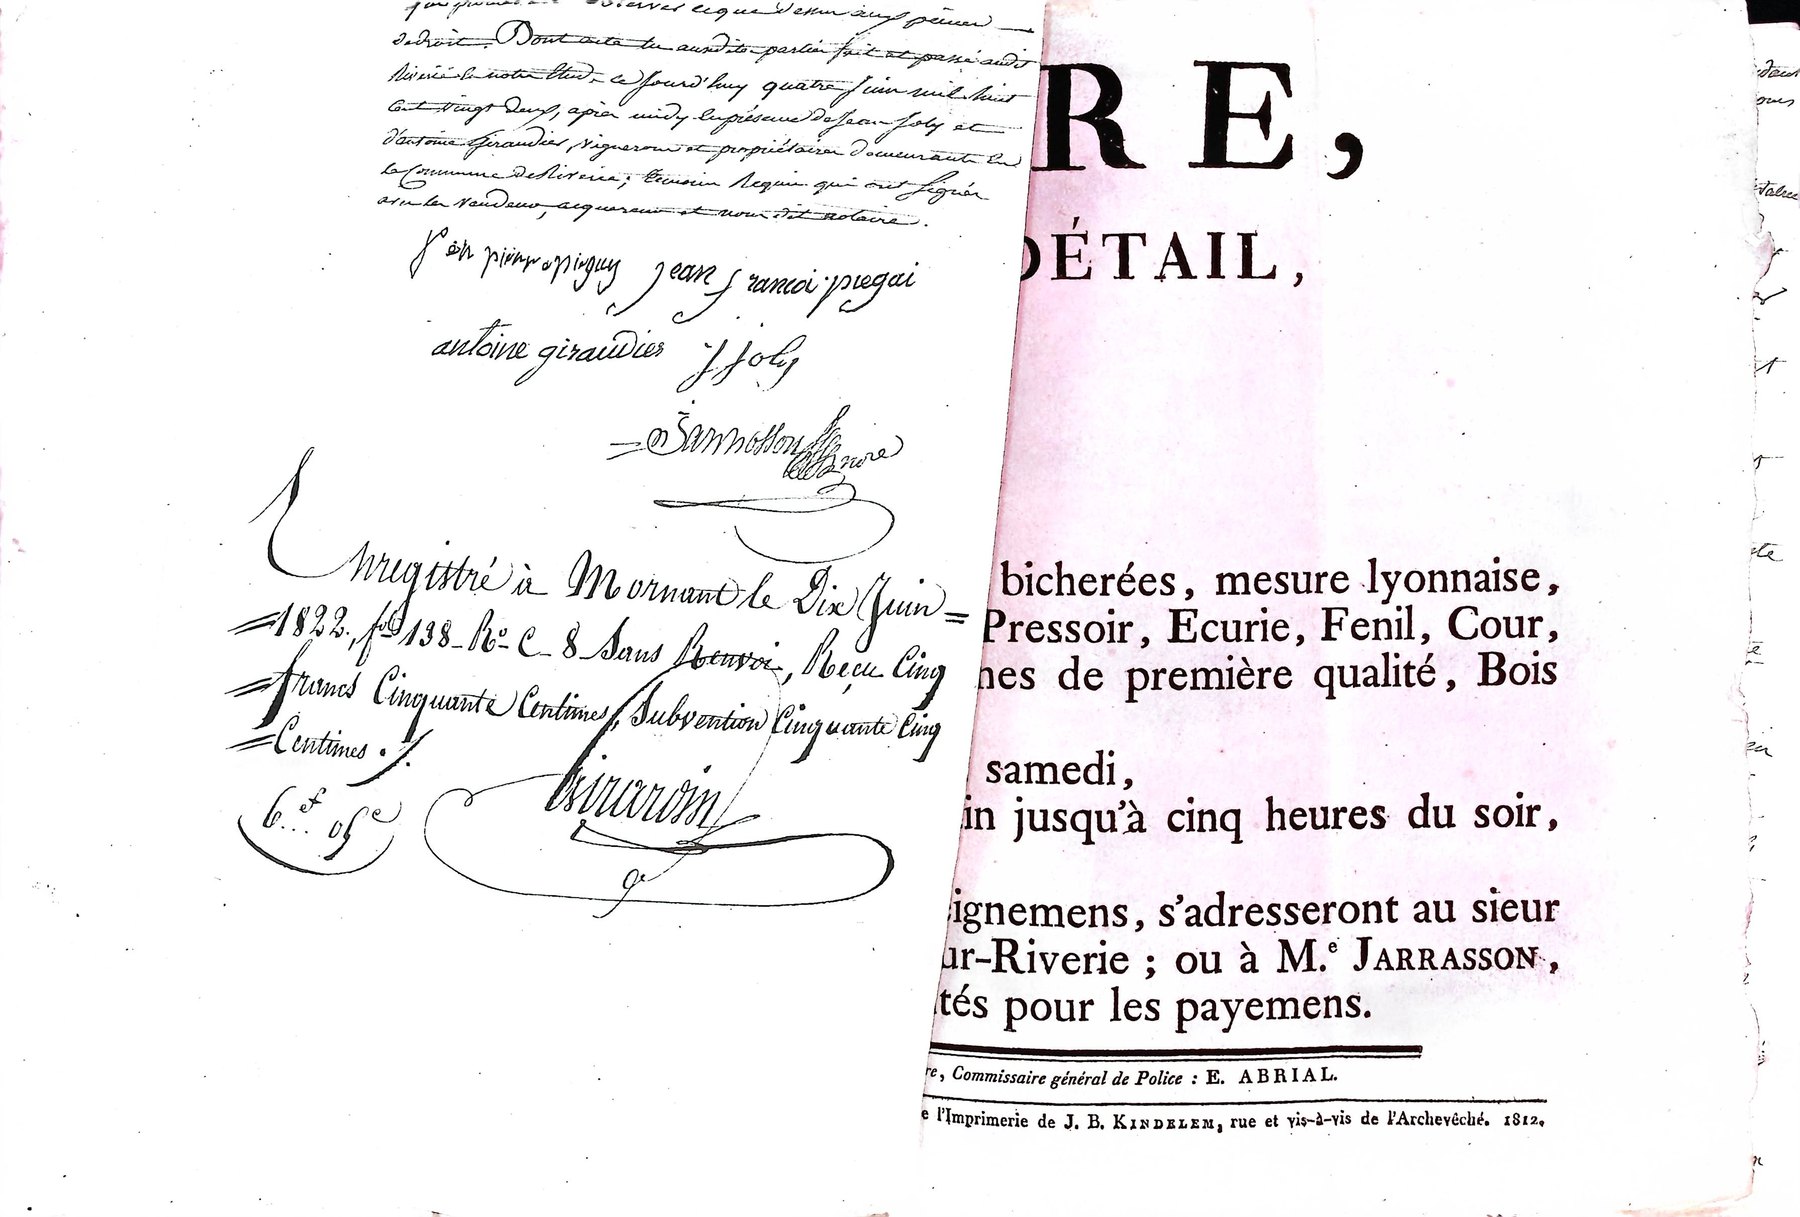 de droit. Dont acte lu auxdites parties fait et passé audit
Riverie en notre Etude ce jourd'huy quatre juin mil huit
cent vingt deux, après midy en présence de Jean Joly et
d'antoine Giraudier, vignerons et propriétaires demeurants en
la Commune de Riverie; témoins Requis qui ont signés
avec les vendeur, acquereur et nous dit notaire.
jean francoi pregai
antoine giraudier j joly
Enregistré à Mornant le Dix Juin
1822, f.o 138 R.o C. 8 Sans Renvoi, Reçu Cinq
francs Cinquante Centimes, Subvention Cinquante Cinq
Centimes ./.
6.f 05c
Girardin
RE,
DÉTAIL,
bicherées, mesure lyonnaise,
Pressoir, Ecurie, Fenil, Cour,
nes de première qualité, Bois
samedi,
in jusqu'à cinq heures du soir,
ignemens, s'adresseront au sieur
ur-Riverie ; ou à M.e JARRASSON,
tés pour les payemens.
re, Commissaire général de Police : E. ABRIAL.
e l'Imprimerie de J. B. KINDELEM, rue et vis-à-vis de l'Archevêché. 1812.